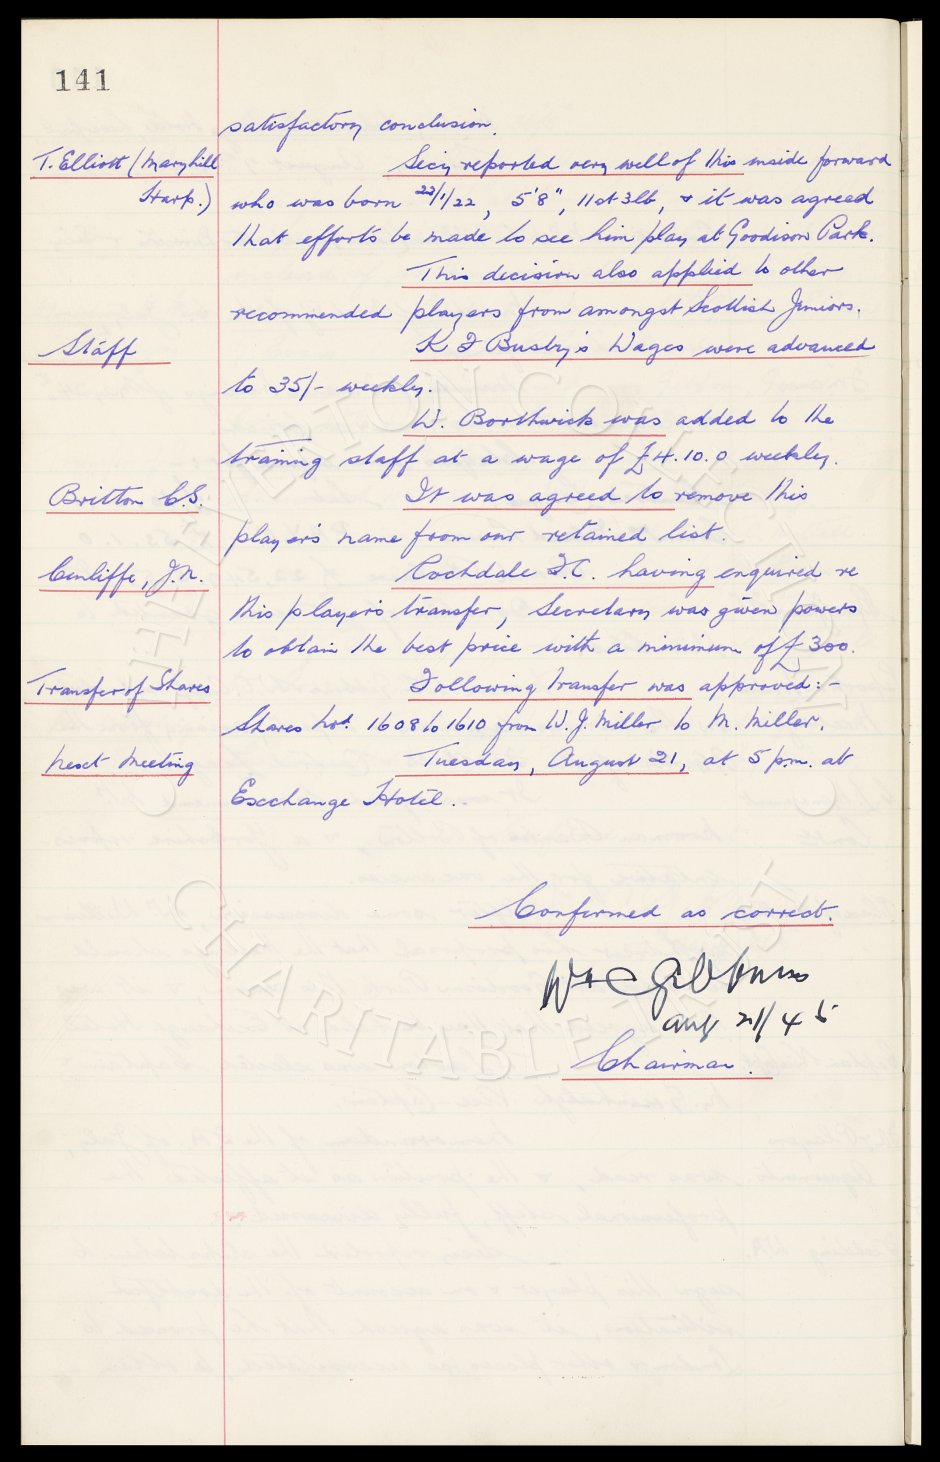 141
satisfactory conclusion.
T. Elliott (Maryhill Secy reported very well of this inside forward
Harp.) who was born 22/1/22, 5'8", 11st 3lb, & it was agreed
that efforts be made to see him play at Goodison Park.
This decision also applied to other
recommended players from amongst Scottish Juniors.
Staff K F Busby's Wages were advanced
to 35/- weekly.
W. Borthwick was added to the
training staff at a wage of £4.10.0 weekly.
Britton C.S. It was agreed to remove this
player's name from our retained list.
Cunliffe, J.N. Rochdale F.C. having enquired re
this player's transfer, Secretary was given powers
to obtain the best price with a minimum of £300.
Transfer of Shares Following transfer was approved:-
Shares Nos. 1608 to 1610 from W. J. Miller to M. Miller.
Next Meeting Tuesday, August 21, at 5 p.m. at
Exchange Hotel.
Confirmed as correct.
Wm C Gibbins
Aug 21/45
Chairman.
EVERTON COLLECTION
CHARITABLE TRUST